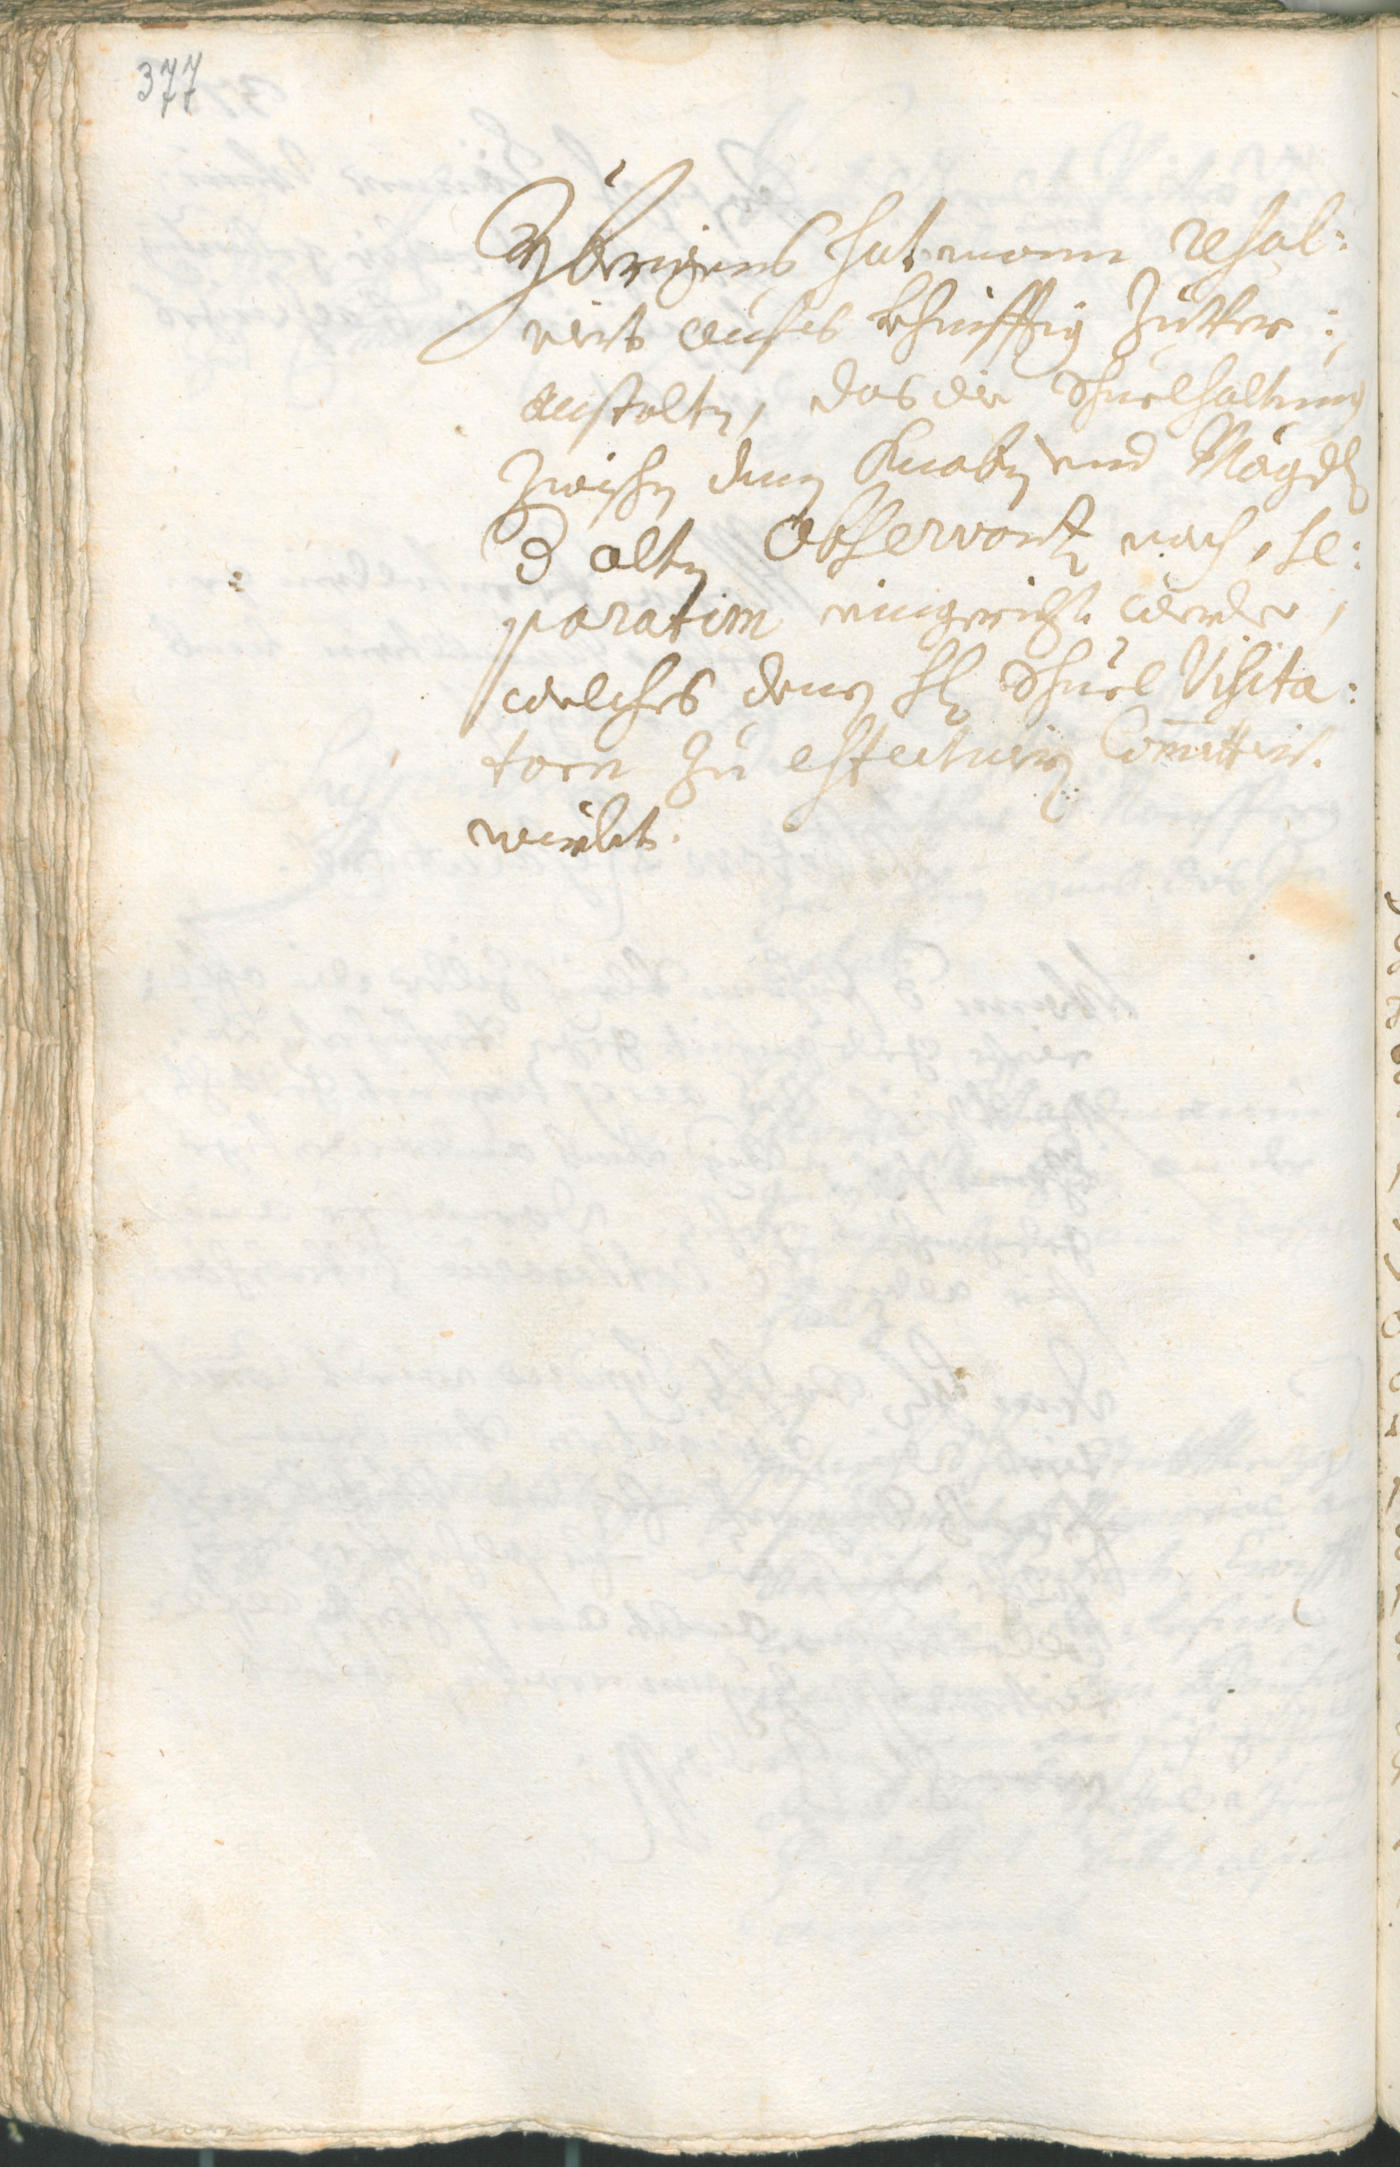 377
Ybrigens hat mann resol:
virt aufs khünfftig Zu ver:
anstalten, das die Schuelhaltung
Zwischen denen Knaben und Mägdl
d alten Observantz nach, se:
paratim eingericht werde,
welches denen hl Schuel Visita:
torn Zu effectuiren Committirt
wirdet.